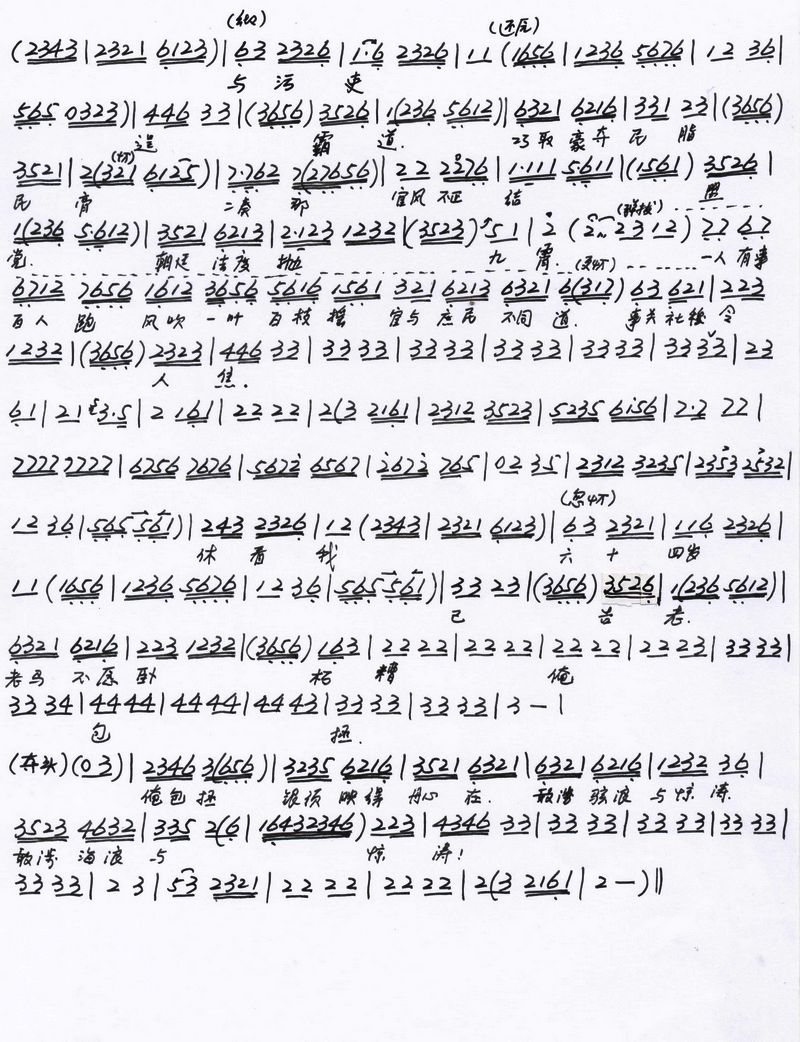 (2343|2321 6123)|63 2326|1·6 2326|11(1656|1236 5676|12 36|
与 污 吏
565 0323)|446 33|(3656) 3526|1(236 5612)|6321 6216|331 23|(3656)
逞 霸 道. 巧取 豪夺 民 脂
3521|2(321 6125)|7·762 7(27656)|22 2276|1·111 5611|(1561) 3526|
民 膏 那 官风 不正 结
1(236 5612)|3521 6213|2·123 1232|(3523) 51|2 (2~ 2312) 77 67
党. 朝廷 法度 抛 九 霄. 一人 有事
6712 7656 1612 3656 5616 1561 321 6213 6321 6(317) 63 621|223
百人 跑 风吹 一叶 百枝 摇 官与 庶民 不同 道. 事关 社稷 令
1232|(3656) 2323|446 33|33 33|33 33|33 33|33 33|33 33|23
人 焦.
61|21 3·5|2 161|22 22|2(3 2161|2312 3523|5235 6156|2·2 22|
7777 7777|6756 7676|5672 6567|2672 765|02 35|2312 3235|2353 2532|
12 36|565 561)|243 2326|12(2343|2321 6123)|63 2321|116 2326|
休 看 我 六 十 四岁
11(1656|1236 5676|12 36|565 561)|33 23|(3656) 3526|1(236 5612)|
已 苍 老.
6321 6216|223 1232|(3656) 163|22 22|22 22|22 22|22 23|33 33|
老马 不愿 卧 枥 槽 俺
33 34|44 44|44 44|44 43|33 33|33 33|3 —|
包 拯.
(夺头)(03)|2346 3(656)|3235 6216|3521 6321|6321 6216|1232 36|
俺包 拯 银须 映得 丹心 在. 敢蹚 骇浪 与 惊 涛.
3523 4632|335 2(6|16432346) 223|4346 33|33 33|33 33|33 33|
敢蹚 海浪 与 惊 涛!
33 33|2 3|53 2321|22 22|22 22|2(3 2161|2 —)‖